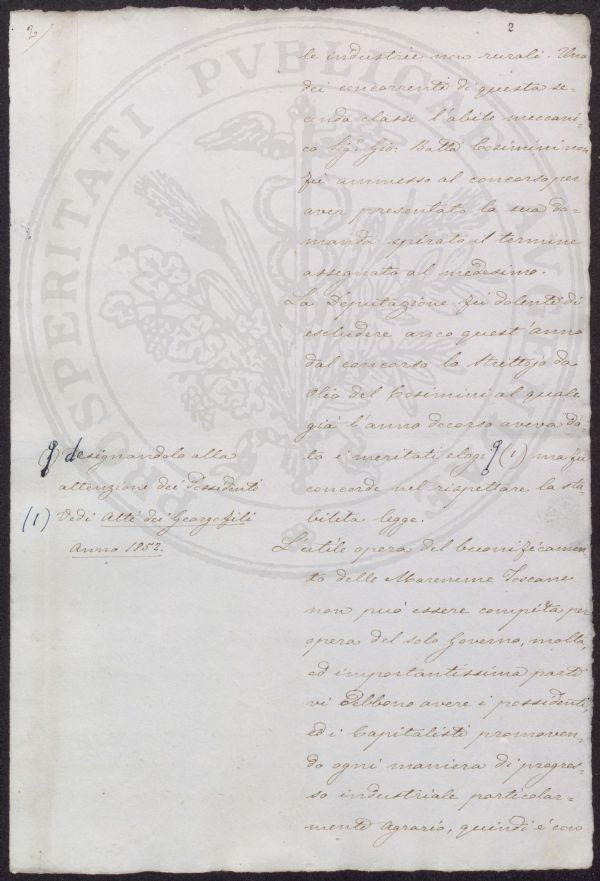 2
2
PROSPERITATI PVBLICAE AVGENDAE
le industrie non rurali. Uno
dei concorrenti di questa se=
conda classe l'abile meccani=
co Sigr Gio: Batta Cosimini non
fu ammesso al concorso per
aver presentato la sua do=
manda spirato il termine
assegnato al medesimo.
La Deputazione fu dolente di
escludere anco quest'anno
dal concorso lo Strettojo da
Olio del Cosimini al quale
già l'anno decorso aveva da=
to i meritati elogi (1) ma fu
concorde nel rispettare la sta=
bilita legge.
designandolo alla
attenzione dei Possidenti
(1) Vedi Atti dei Georgofili
Anno 1852.
L'utile opera del buonificamen=
to delle Maremme Toscane
non può essere compita per
opera del solo Governo, molta,
ed importantissima parte
vi debbono avere i possidenti,
ed i Capitalisti promoven=
do ogni maniera di progres=
so industriale particolar=
mente agrario, quindi è con